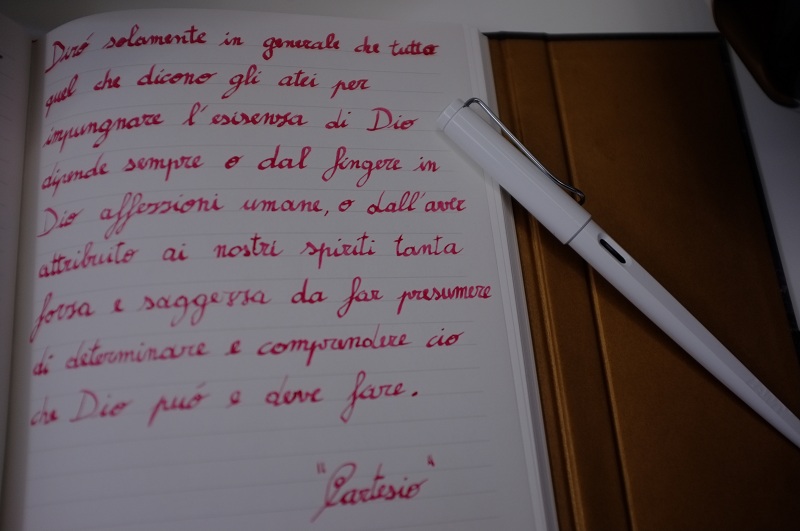 Diró solamente in generale che tutto
quel che dicono gli atei per
impungnare l'esisenza di Dio
dipende sempre o dal fingere in
Dio affezzioni umane, o dall'aver
attribuito ai nostri spiriti tanta
forza e saggezza da far presumere
di determinare e comprendere cio
che Dio puó e deve fare.
"Cartesio"